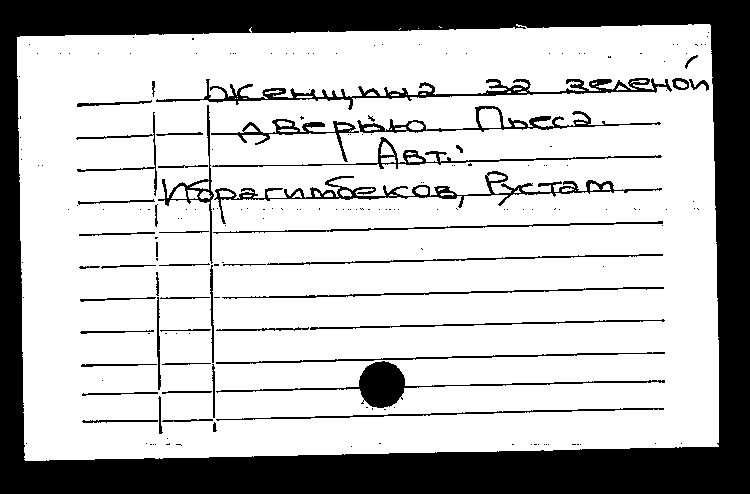 Женщина за зеленой
дверью. Пьеса.
Авт.:
Ибрагимбеков, Рустам.